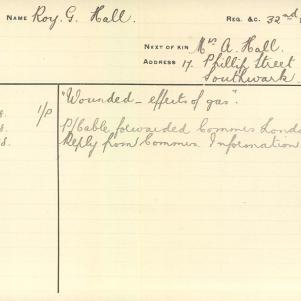 NAME Roy. G. Hall. REG. &C. 32nd
NEXT OF KIN Mrs A. Hall.
ADDRESS 17. Phillip Street
Southwark
"Wounded - effects of gas".
1/P P/Cable forwarded Commis London
Reply from Commis. Information